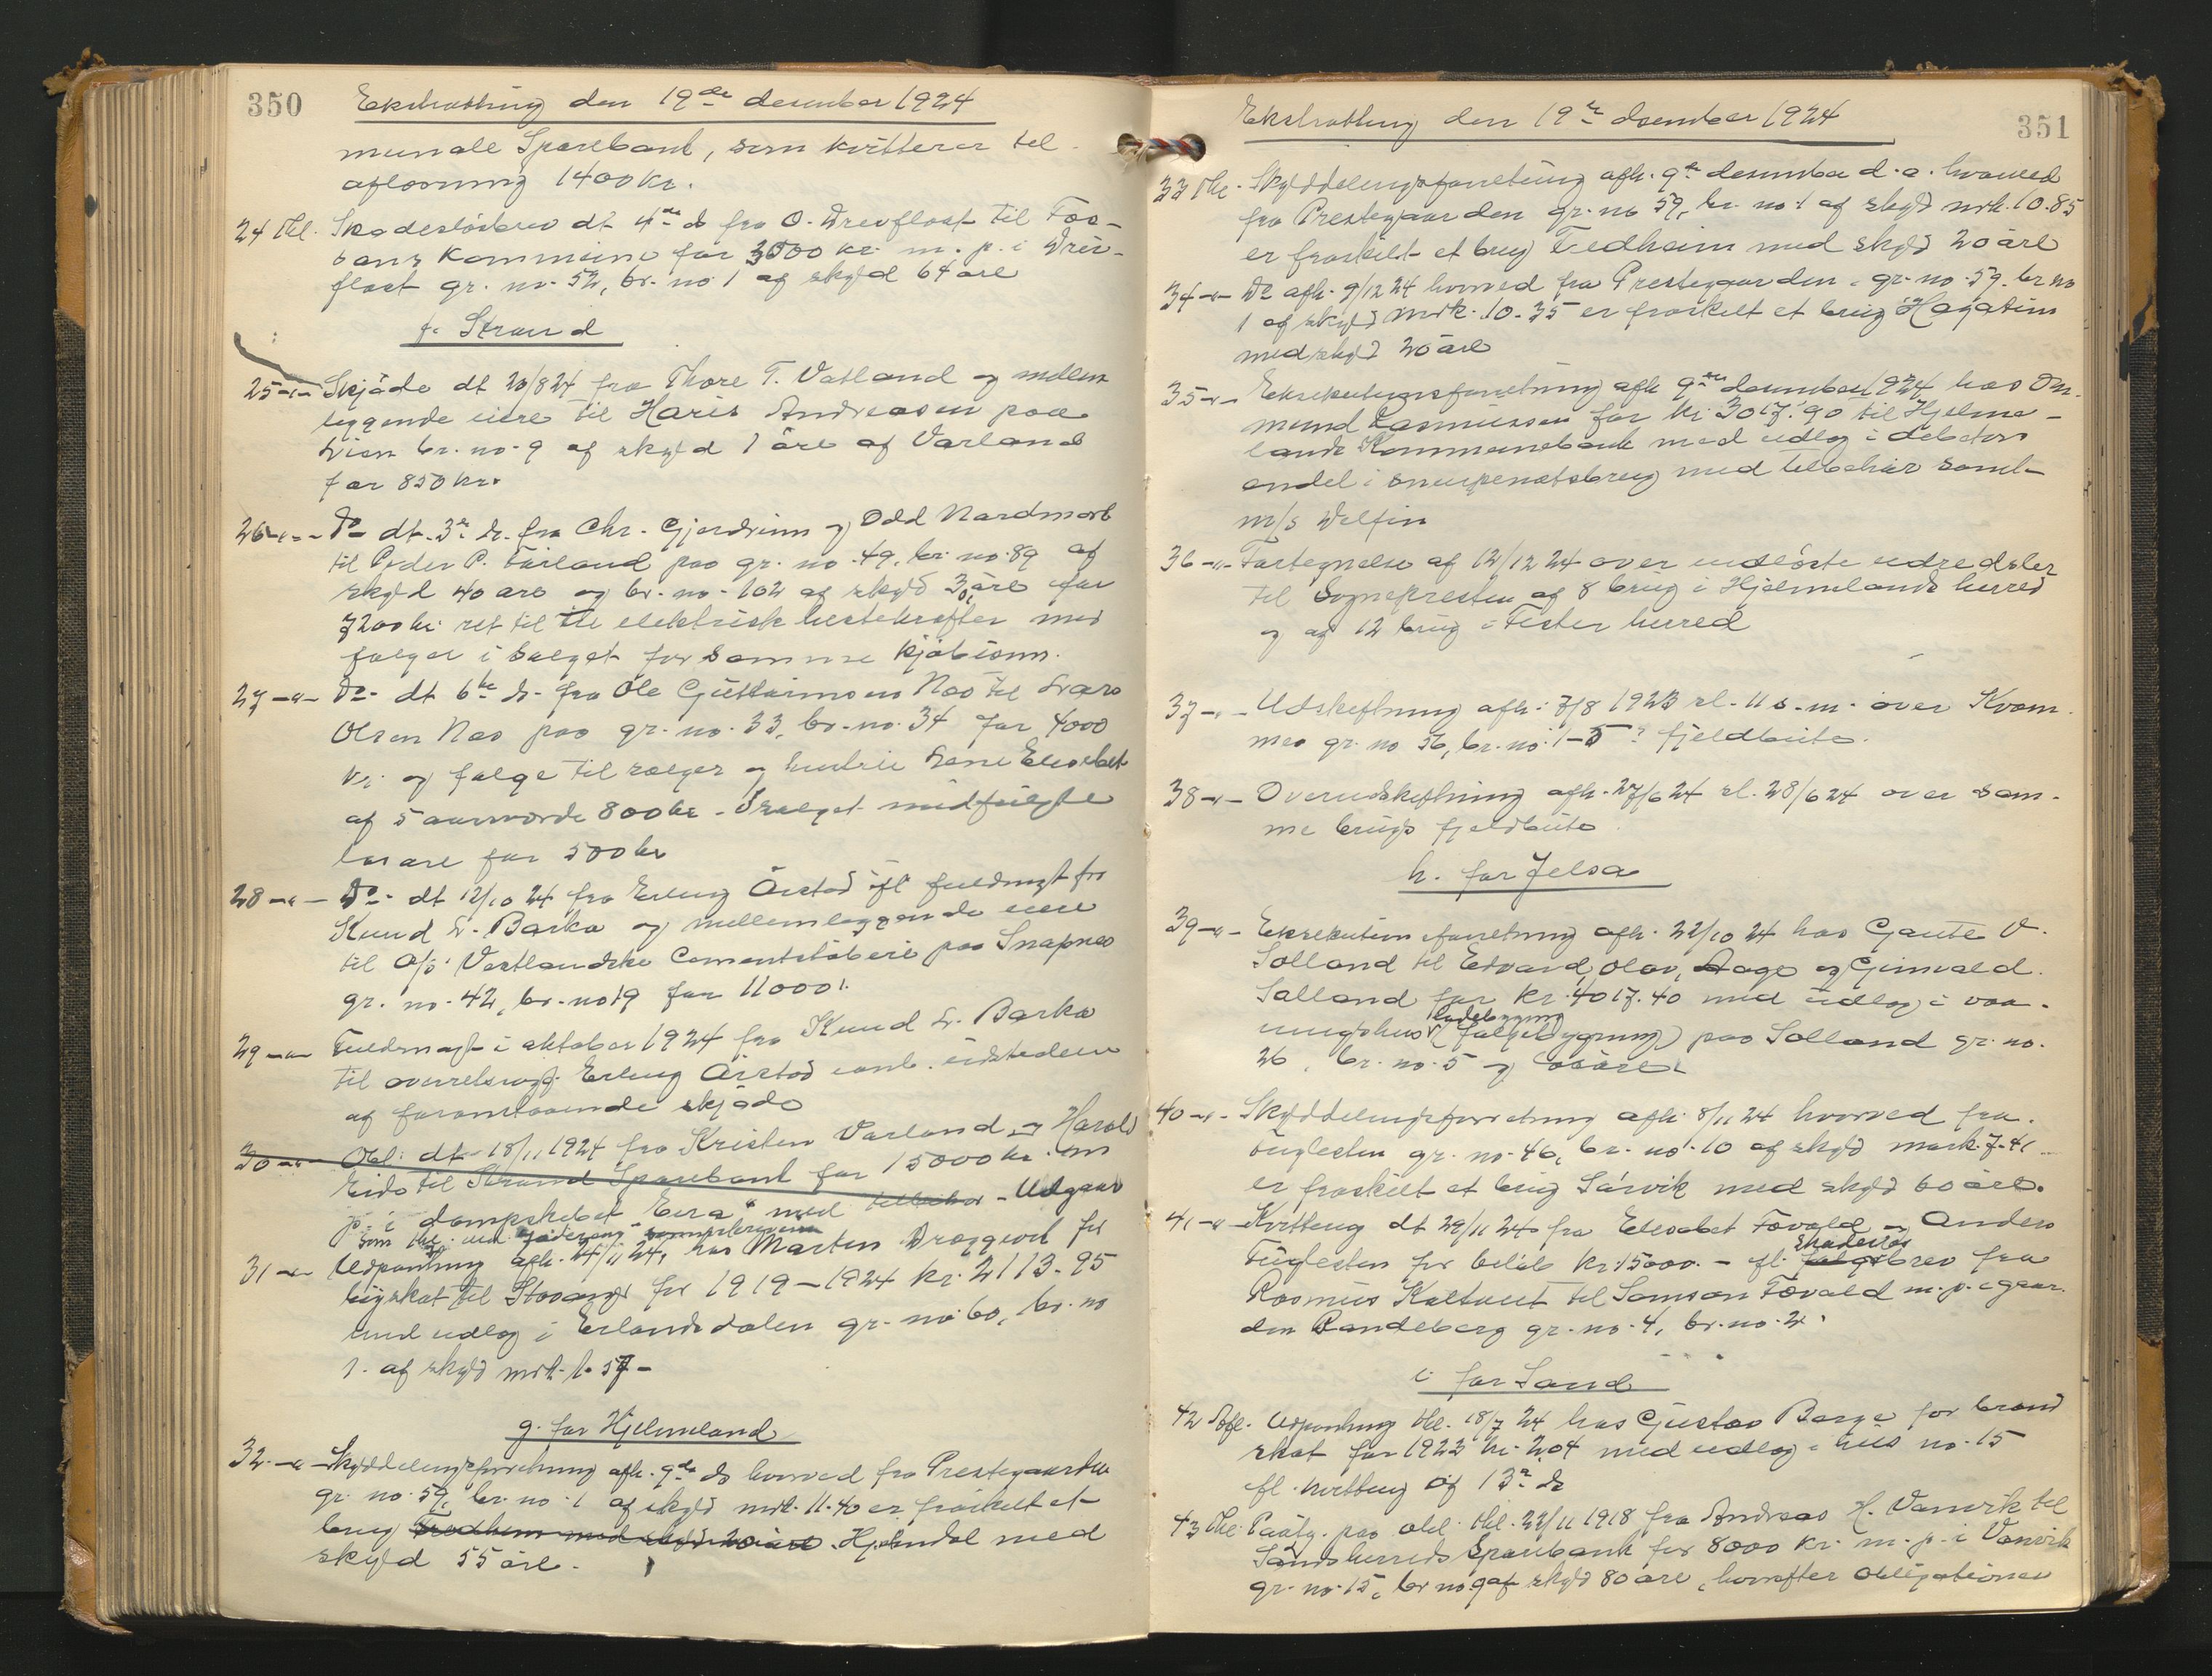 350
Ekstratting den 19de desember 1924
munale Sparebank, som kvitterer til
aflösning 1400 kr.
24 thl. Skadeslösbrev dt 4de ds fra O. Drevflaat til Fos-
sans kommune for 3500 kr. m. p. i Drev-
flaat gr. no. 52, br. no 1 af skyld 64 øre
f. Strand
25 -"- Skjöde dt 20/8 24 fra Thore T. Vatland og mellem
liggende eiere til Haris Andreasen paa
Lien br. no. 9 af skyld 1 öre af Varland
for 850 kr.
26 -"- Do dt. 3de ds. fra Chr. Gjerdrum og Odd Nordmark
til Peder P. Tärland paa gr. no. 49, br. no. 89 af
skyld 40 øre og br. no. 102 af skyld 30 öre for
7200 kr. ret til elektrisk hestekrefter med
følger i salget for samme kjöbesum.
27 -"- Do. dt 6te ds. fra Ole Guttormsen Nes til Lars
Olsen Nes paa gr. no. 33, br. no. 34 for 4000
kr. og følge til sælger og hustru Lene Elisabet
af 5 aarsværde 800 kr. I salget medfulgte
løsøre for 500 kr
28 -"- Do. dt 12/10 24 fra Erling Årstad ifl fuldmagt fra
Knud L. Barka og mellemliggende eiere
til A/S Vestlandske Cementstöberi paa Snapnes
gr. no. 42, br. no 19 for 11000.
29 -"- Fuldmagt i oktober 1924 fra Knud L. Barka
til overretssagf. Erling Årstad ang. udstedelse
af foranstaaende skjøde
30 -"- Obl. dt. 18/11 1924 fra Kristen Varland og Harald
Eide til Strand Sparebank for 15000 kr. m
p. i dampskibet "Eira" med tilbehør - Udgaar
som thl. ved
31 -"- Udpanting afh. 24/11 24, hos Marten Dreggevik for
byskat til Stavanger for 1919-1924 kr. 2113.95
med udlæg i Erlandsdalen gr. no 60, br. no
1. af skyld mrk. 1.57 -
g. for Hjelmeland
32 -"- Skylddelingsforretning afh. 9de ds hvorved fra Prestegaarden
gr. no. 59, br. no 1 af skyld mrk. 11.40 er fraskilt et
brug Fredheim med skyld 20 øre Hjelmdal med
skyld 55 øre.
351
Ekstratting den 19de desember 1924
33 Thl. Skylddelingsforretning afh. 9de desember d. a. hvorved
fra Prestegaarden gr. no 59, br. no 1 af skyld mrk. 10.85
er fraskilt et brug Fedheim med skyld 20 øre
34 -"- Do afh. 9/12 24 hvorved fra Prestegaarden gr. no. 59. br no
1 af skyld mrk. 10.35 er fraskilt et brug Hagatun
med skyld 20 øre
35 -"- Eksekutionsforretning afh 9de desember 1924 hos Om-
mund Rasmussen for kr. 3017.90 til Hjelme-
lands Kommunebank med udlæg i debitors
andel i snurpenotsbrug med tilbehør samt
m/s Delfin
36 -"- Fortegnelse af 12/12 24 over indløste udredsler
til Sognepresten af 8 brug i Hjelmelands herred
og af 12 brug i Fister herred
37 -"- Udskiftning afh. 7/8 1923 sl. 11 s. m. over Kvam-
mes gr. no 56, br. no. 1-5 fjeldbeite.
38 -"- Overudskiftning afh. 27/6 24 sl. 28/6 24 over sam-
me brugs fjeldbeite.
h. for Jelsa
39 -"- Eksekutionsforretning afh. 22/10 24 hos Gaute V.
Solland til Edvard, Olav, Aage og Ginvald
Solland for kr. 4017.40 med udlæg i vaa-
ningshus ladebygning (følgebygning) paa Solland gr. no.
26, br. no. 5 og løsøre
40 -"- Skylddelingsforretning afh. 8/11 24 hvorved fra
Fuglesten gr. no. 46, br. no. 10 af skyld mark. 7.41
er fraskilt et brug Sørvik med skyld 60 øre.
41 -"- Kvittering dt 29/11 24 fra Elisabet Tøvald og Anders
Fuglesten for beløb kr. 15000. - ifl. skadesløs følgebrev fra
Rasmus Kaltveit til Samson Tøvald m. p. i gaar-
den Randeberg gr. no. 4, br. no. 2.
i for Sand
42 Aafl. Udpanting thl. 18/7 24 hos Gustav Berge for brand
skat for 1923 kr. 2.04 med udlæg i hus no. 15
ifl. kvittering af 13de ds
43 Thl. Paateg. paa obl. thl. 22/11 1918 fra Andreas H. Vanvik til
Sands herreds Sparebank for 8000 kr. m. p. i Vanvik
gr. no. 15, br no. 9 af skyld 80 øre, hvorefter obligationen